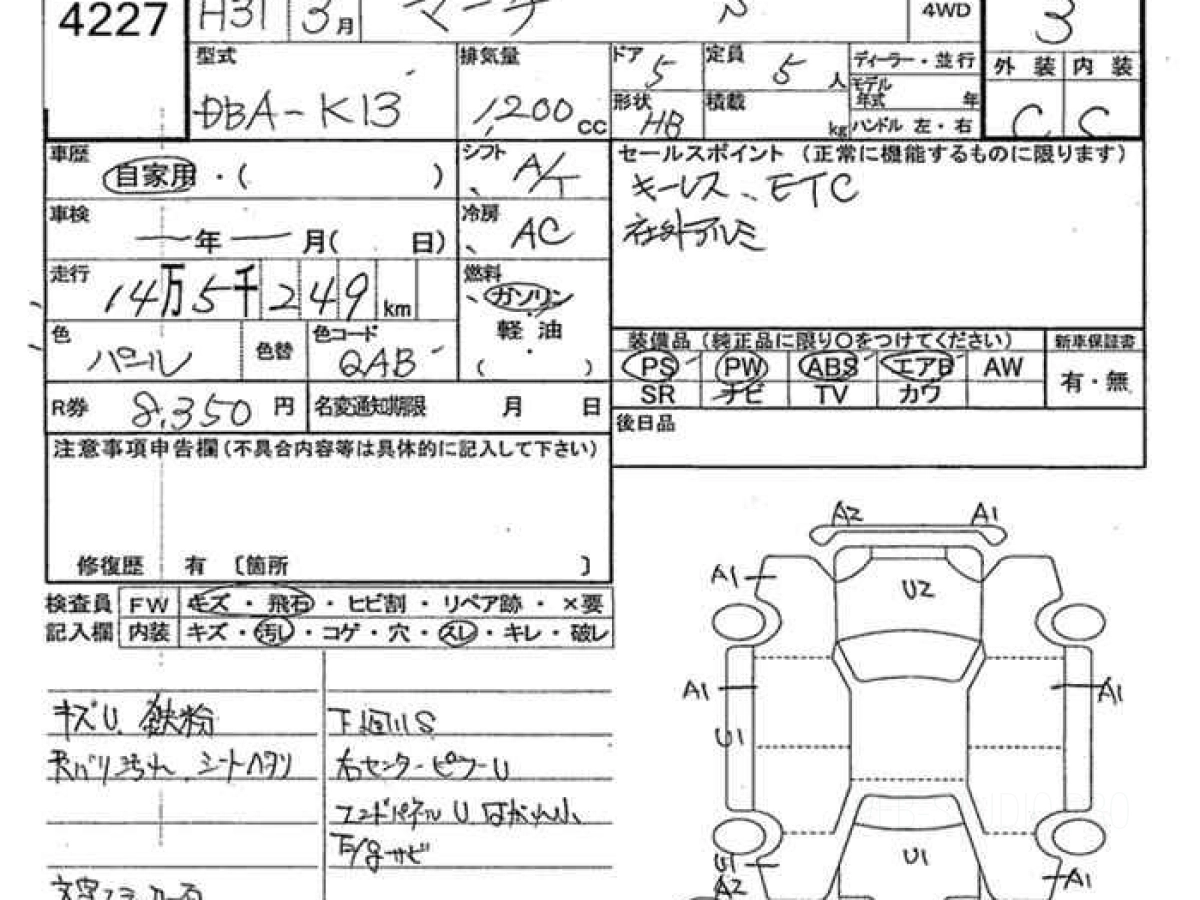 4227
H31 3月 マーチ S 4WD 3
型式 排気量 ドア 5 定員 5人 ディーラー・並行 外装 内装
モデル年式 年
DBA-K13 1,200cc 形状 HB 積載 kg ハンドル 左・右 C C
車歴 自家用・( ) シフト A/T
セールスポイント (正常に機能するものに限ります)
キーレス、ETC
社外アルミ
車検 ー年ー月( 日) 冷房 AC
走行 14万5千249km 燃料 ガソリン・軽油・( )
色 パール 色替 色コード QAB
装備品 (純正品に限り○をつけてください) 新車保証書
PS PW ABS エアB AW 有・無
SR ナビ TV カワ
R券 8,350円 名変通知期限 月 日
後日品
注意事項申告欄(不具合内容等は具体的に記入して下さい)
修復歴 有 〔箇所 〕
検査員 FW キズ・飛石・ヒビ割・リペア跡・×要
記入欄 内装 キズ・汚レ・コゲ・穴・スレ・キレ・破レ
キズU、鉄粉
天バリ汚れ、シートヘタリ
下廻りS
右センターピラーU
エンドパネルU はがれ小
下/8サビ
A2 A1
A1 U2
A1 A1
U1
U1 U1
A2 A1